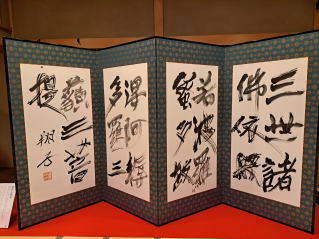 三世諸
佛依般
若波羅
蜜多故
得阿耨
多羅三
藐三菩
提
翔子